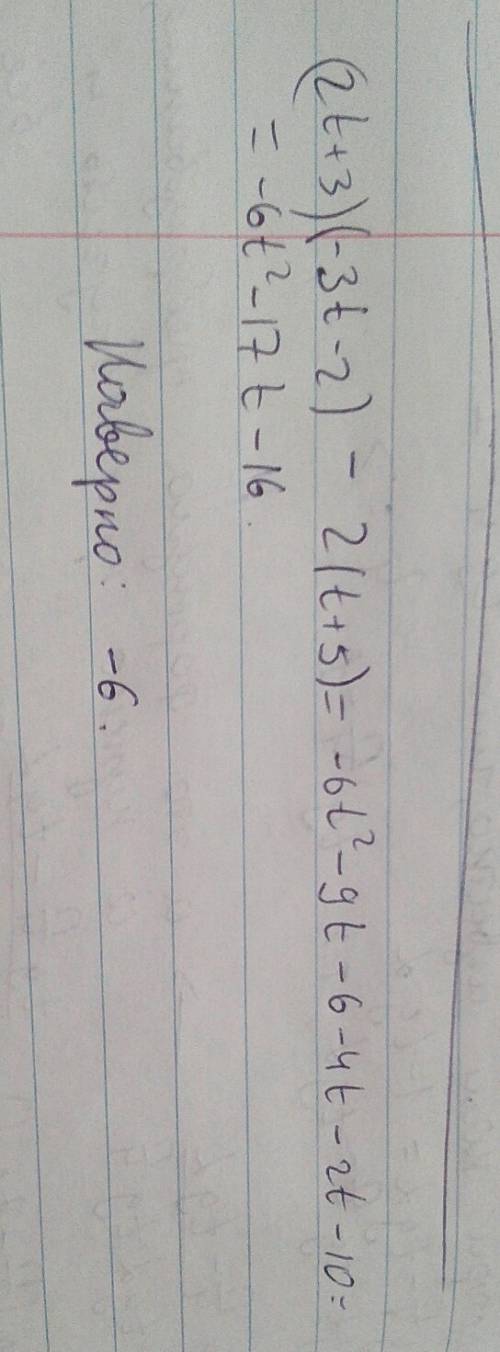 (2t+3)(-3t-2) - 2(t+5)= -6t²-9t-6-4t-2t-10=
= -6t²-17t-16.
Наверно: -6.